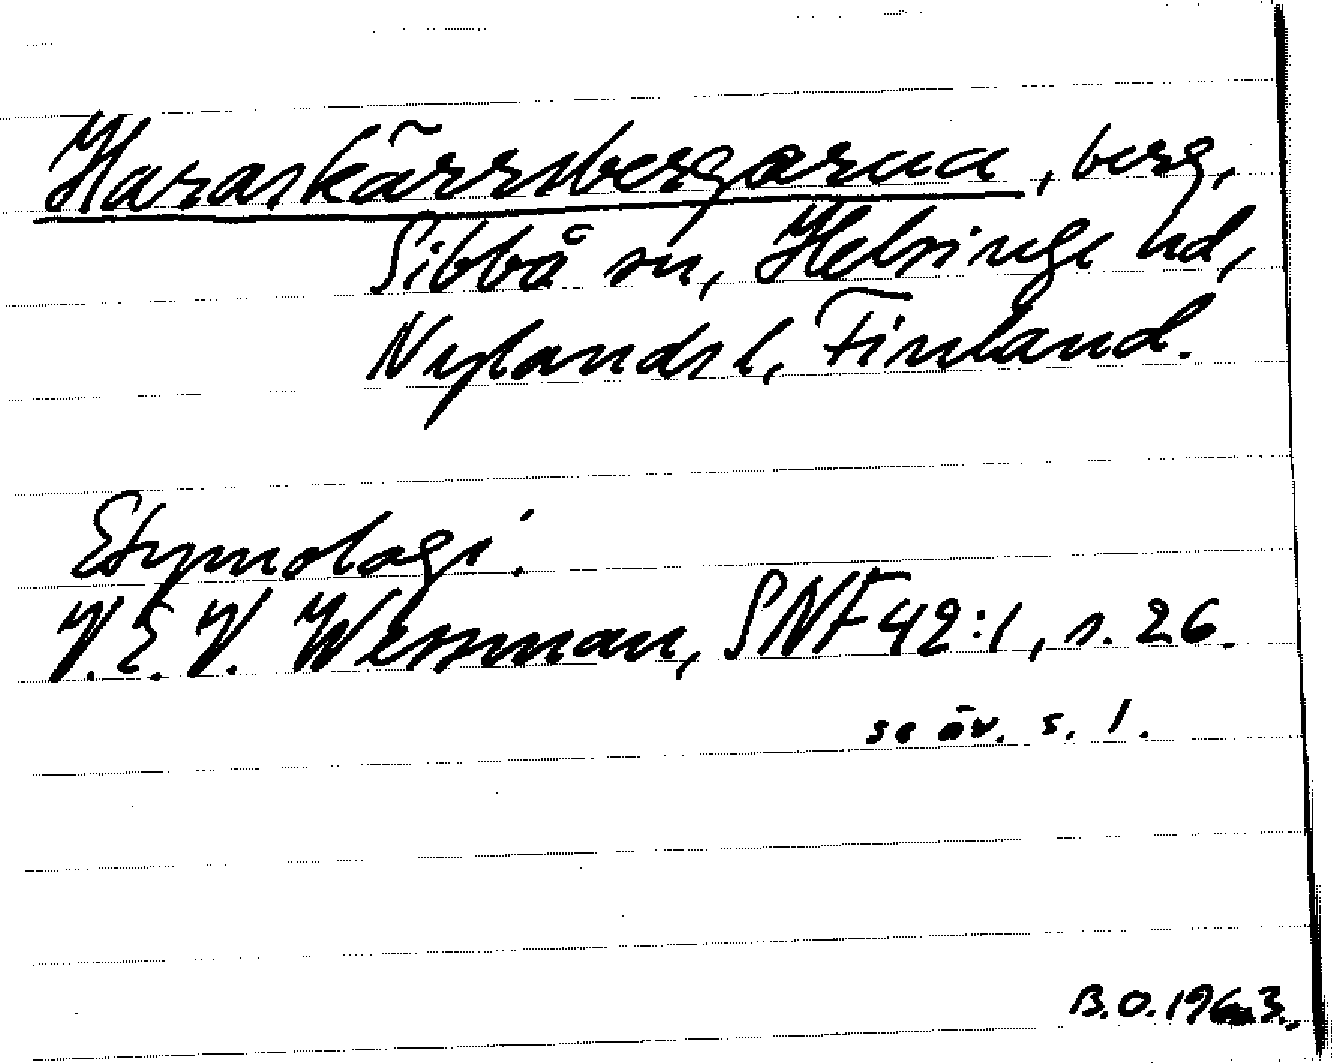 Haraskärrsbergarna, berg,
Sibbå sn, Helsinge hd,
Nylands l, Finland.
Etymologi:
V. E. V. Wessman, SNF 42:1, s. 26.
se äv. s. 1.
B.O. 1963.